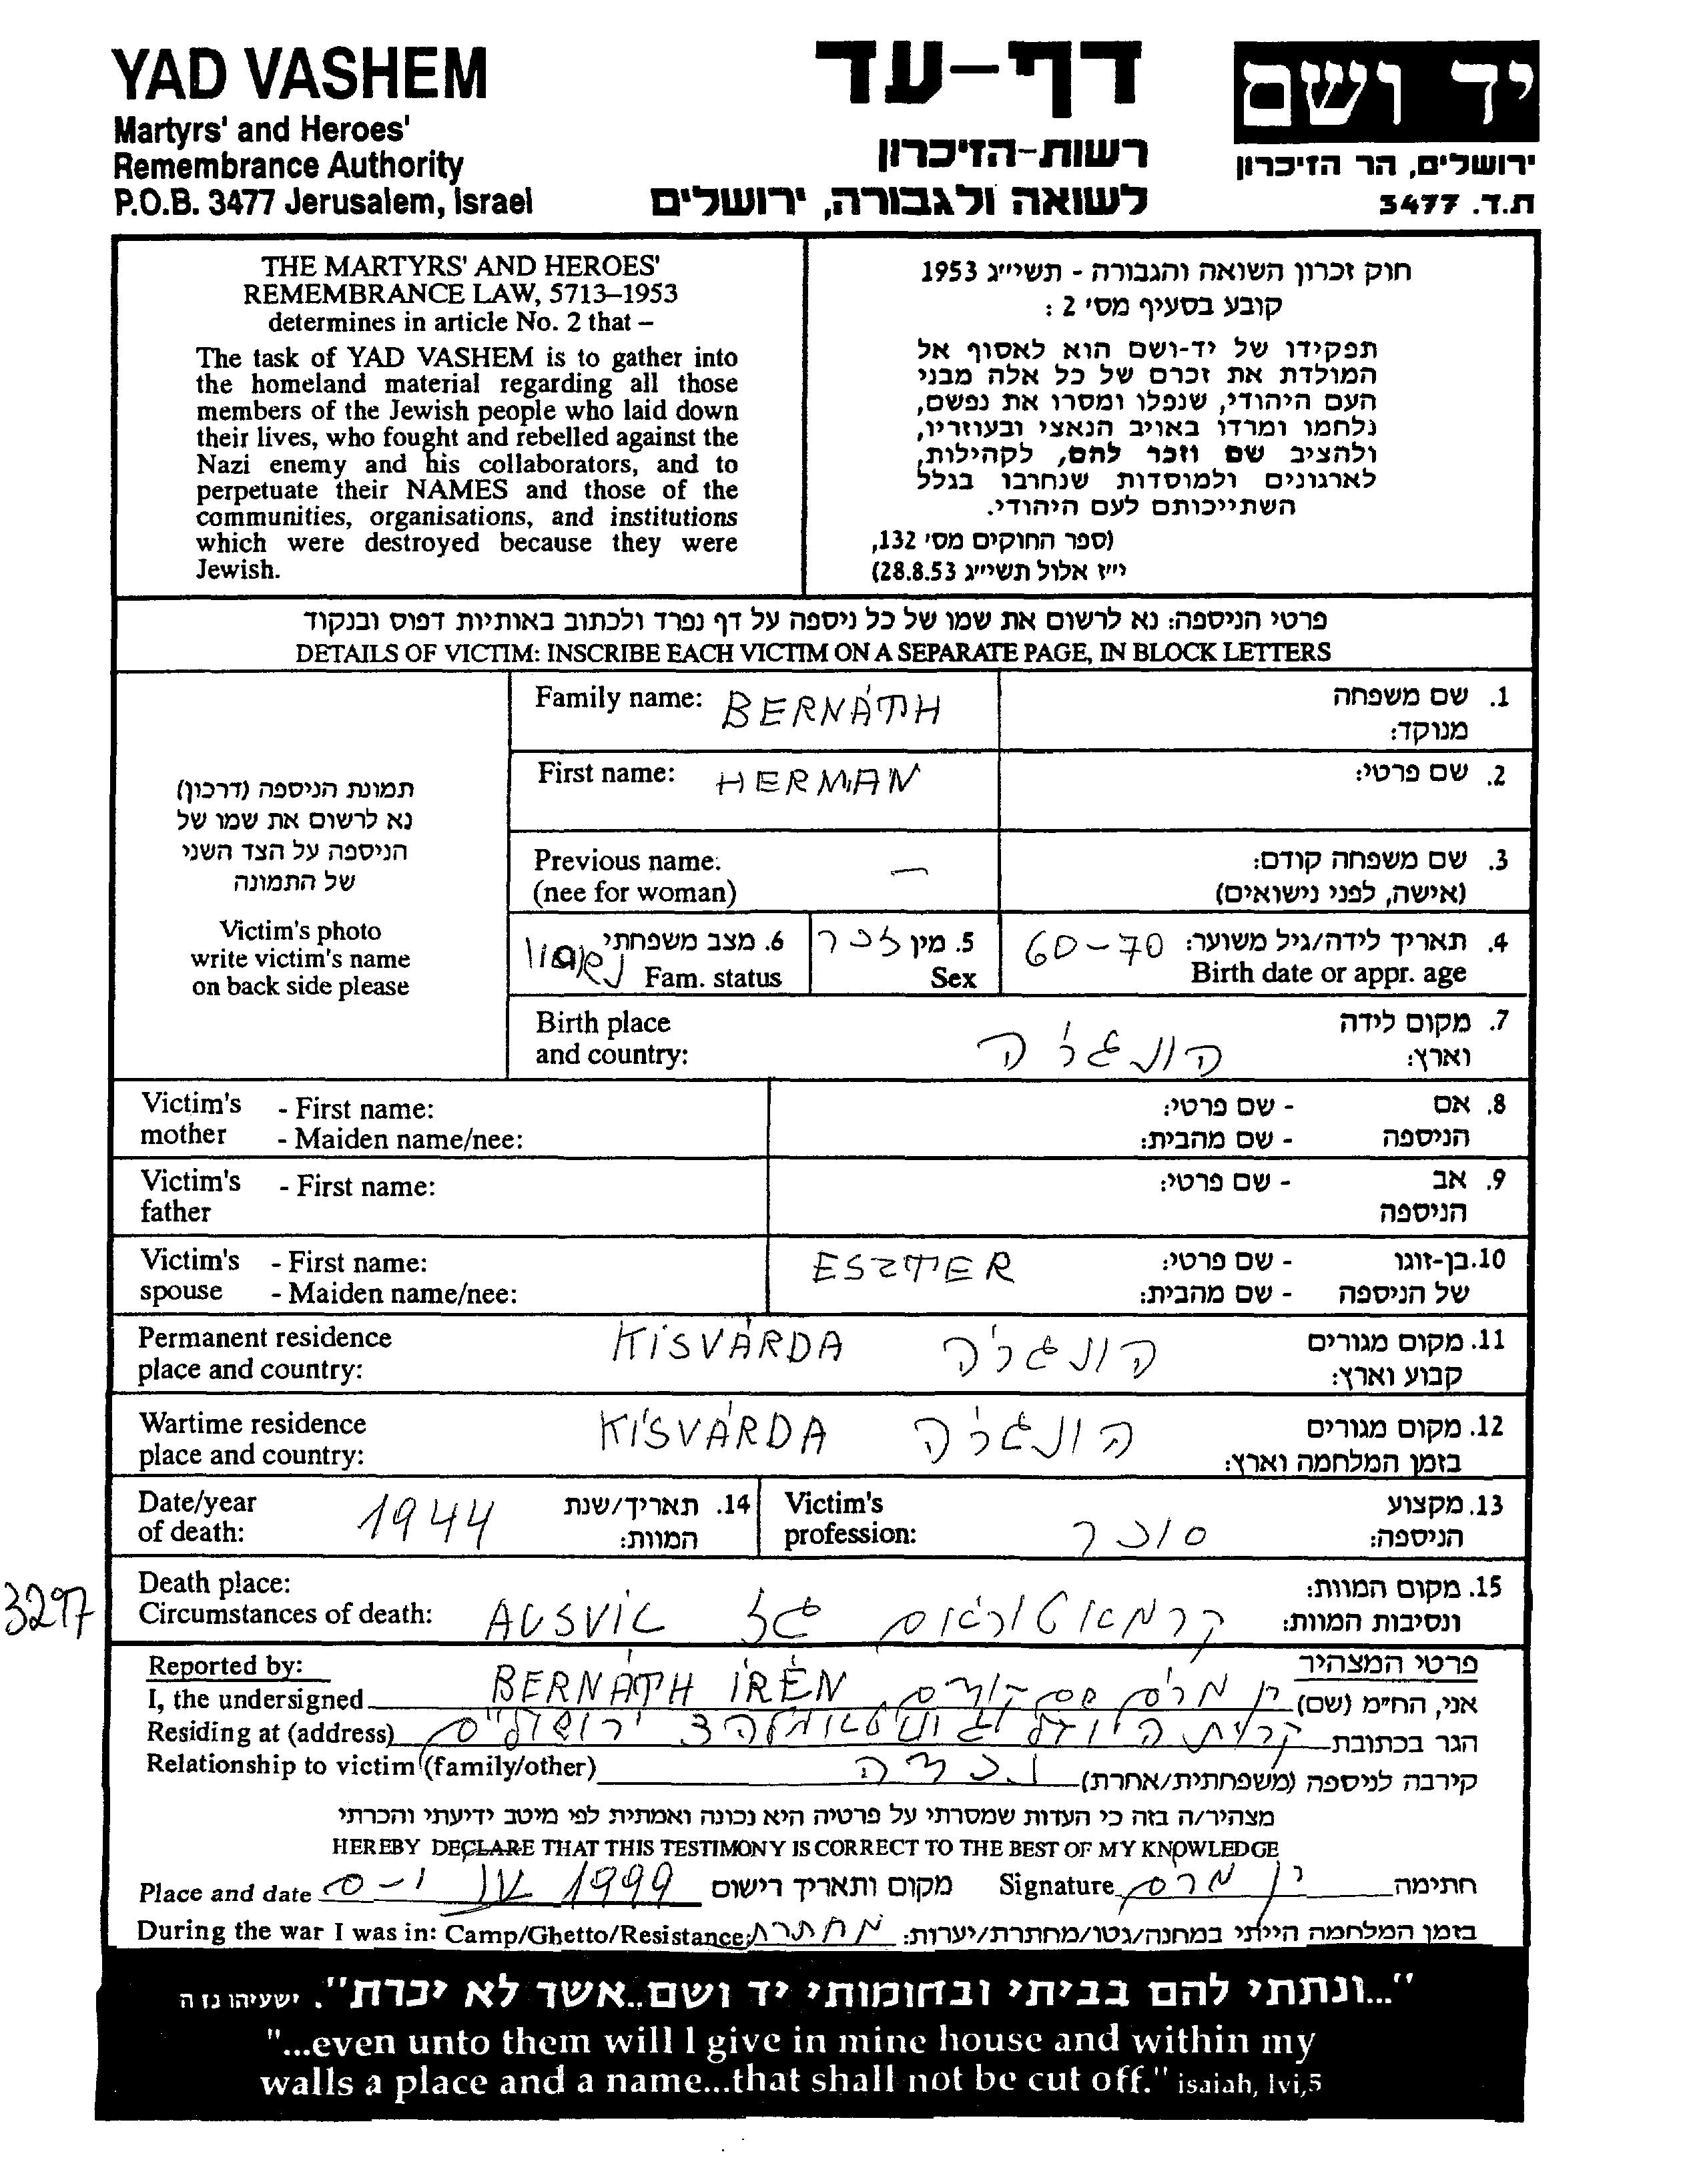 YAD VASHEM
Martyrs' and Heroes'
Remembrance Authority
P.O.B. 3477 Jerusalem, Israel
דף-עד
רשות-הזיכרון
לשואה ולגבורה, ירושלים
יד ושם
ירושלים, הר הזיכרון
ת.ד. 3477
THE MARTYRS' AND HEROES'
REMEMBRANCE LAW, 5713–1953
determines in article No. 2 that –
The task of YAD VASHEM is to gather into
the homeland material regarding all those
members of the Jewish people who laid down
their lives, who fought and rebelled against the
Nazi enemy and his collaborators, and to
perpetuate their NAMES and those of the
communities, organisations, and institutions
which were destroyed because they were
Jewish.
חוק זכרון השואה והגבורה - תשי״ג 1953
קובע בסעיף מס' 2 :
תפקידו של יד-ושם הוא לאסוף אל
המולדת את זכרם של כל אלה מבני
העם היהודי, שנפלו ומסרו את נפשם,
נלחמו ומרדו באויב הנאצי ובעוזריו,
ולהציב שם וזכר להם, לקהילות,
לארגונים ולמוסדות שנחרבו בגלל
השתייכותם לעם היהודי.
(ספר החוקים מס' 132,
י״ז אלול תשי״ג 28.8.53)
פרטי הניספה: נא לרשום את שמו של כל ניספה על דף נפרד ולכתוב באותיות דפוס ובנקוד
DETAILS OF VICTIM: INSCRIBE EACH VICTIM ON A SEPARATE PAGE, IN BLOCK LETTERS
תמונת הניספה (דרכון)
נא לרשום את שמו של
הניספה על הצד השני
של התמונה
Victim's photo
write victim's name
on back side please
Family name: BERNÁTH 1. שם משפחה
מנוקד:
First name: HERMAN 2. שם פרטי:
Previous name. — 3. שם משפחה קודם:
(nee for woman) (אישה, לפני נישואים)
4. תאריך לידה/גיל משוער: 60-70
Birth date or appr. age
5. מין זכר
Sex
6. מצב משפחתי נשוי
Fam. status
Birth place 7. מקום לידה
and country: הונגריה וארץ:
Victim's - First name: - שם פרטי: 8. אם
mother - Maiden name/nee: - שם מהבית: הניספה
Victim's - First name: - שם פרטי: 9. אב
father הניספה
Victim's - First name: ESZTER - שם פרטי: 10. בן-זוגו
spouse - Maiden name/nee: - שם מהבית: של הניספה
Permanent residence KISVÁRDA הונגריה 11. מקום מגורים
place and country: קבוע וארץ:
Wartime residence KISVÁRDA הונגריה 12. מקום מגורים
place and country: בזמן המלחמה וארץ:
Date/year 1944 14. תאריך/שנת
of death: המוות:
Victim's 13. מקצוע
profession: סוכר הניספה:
3297
Death place: 15. מקום המוות:
Circumstances of death: AUSVIC ונסיבות המוות:
Reported by: פרטי המצהיר
I, the undersigned BERNÁTH IRÉN אני, הח״מ (שם)
Residing at (address) 3 ירושלים הגר בכתובת
Relationship to victim (family/other) נכדה קירבה לניספה (משפחתית/אחרת)
מצהיר/ה בזה כי העדות שמסרתי על פרטיה היא נכונה ואמתית לפי מיטב ידיעתי והכרתי
HEREBY DECLARE THAT THIS TESTIMONY IS CORRECT TO THE BEST OF MY KNOWLEDGE
Place and date 1999 מקום ותאריך רישום Signature חתימה
During the war I was in: Camp/Ghetto/Resistance: מחתרת בזמן המלחמה הייתי במחנה/גטו/מחתרת/יערות:
"...ונתתי להם בביתי ובחומותי יד ושם..אשר לא יכרת". ישעיהו נז ה
"...even unto them will I give in mine house and within my
walls a place and a name...that shall not be cut off." isaiah, lvi,5